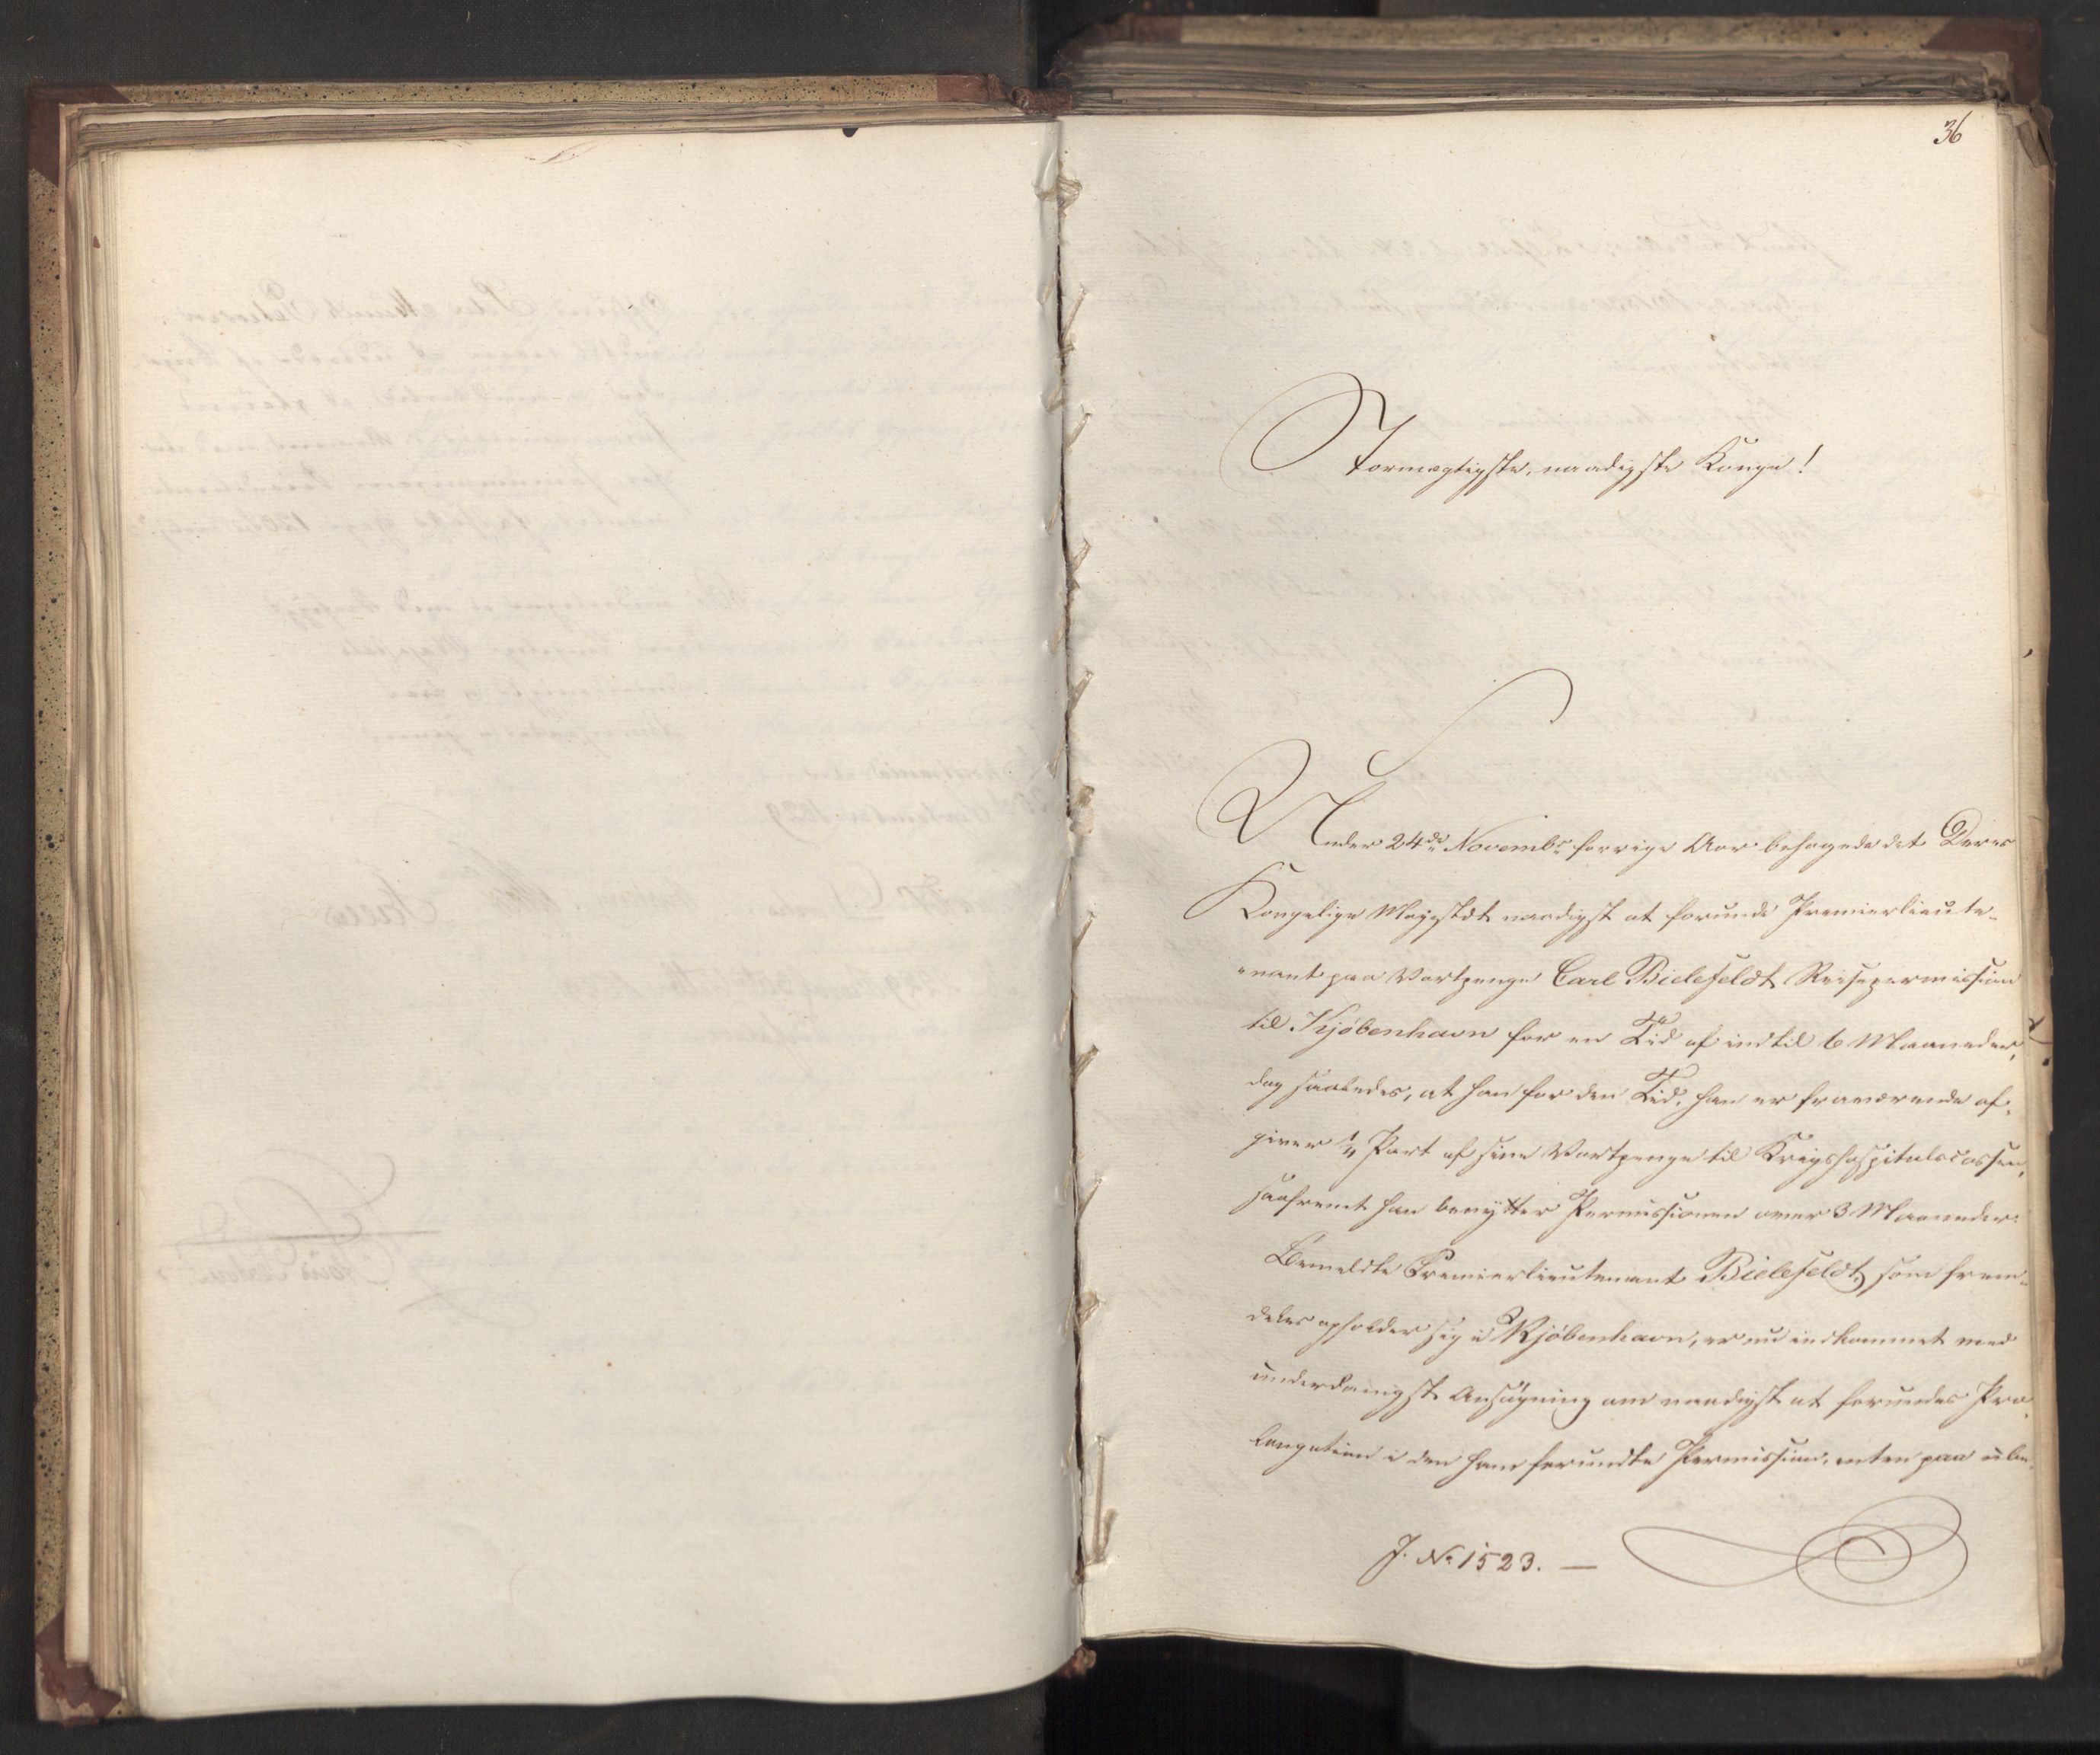 36
Stormægtigste, naadigste Konge!
Under 24de Novembr forrige Aar behagede det Deres
Kongelige Majestæt naadigst at forunde Premierlieute-
nant paa Vartpenge Carl Bielefeldt Reisepermission
til Kjöbenhavn for en Tid af indtil 6 Maaneder,
dog saaledes, at han for den Tid, han er fraværende af-
giver 1/4 Part af sine Vartpenge til Krigshospitalscassen,
saafremt han benytter Permissionen over 3 Maaneder.
Bemeldte Premierlieutenant Bielefeldt, som frem-
deles opholder sig i Kjöbenhavn, er nu indkommet med
underdanigst Ansögning om naadigst at forundes Pro-
longation i den ham forundte Permission, enten paa ube-
J. No 1523. —